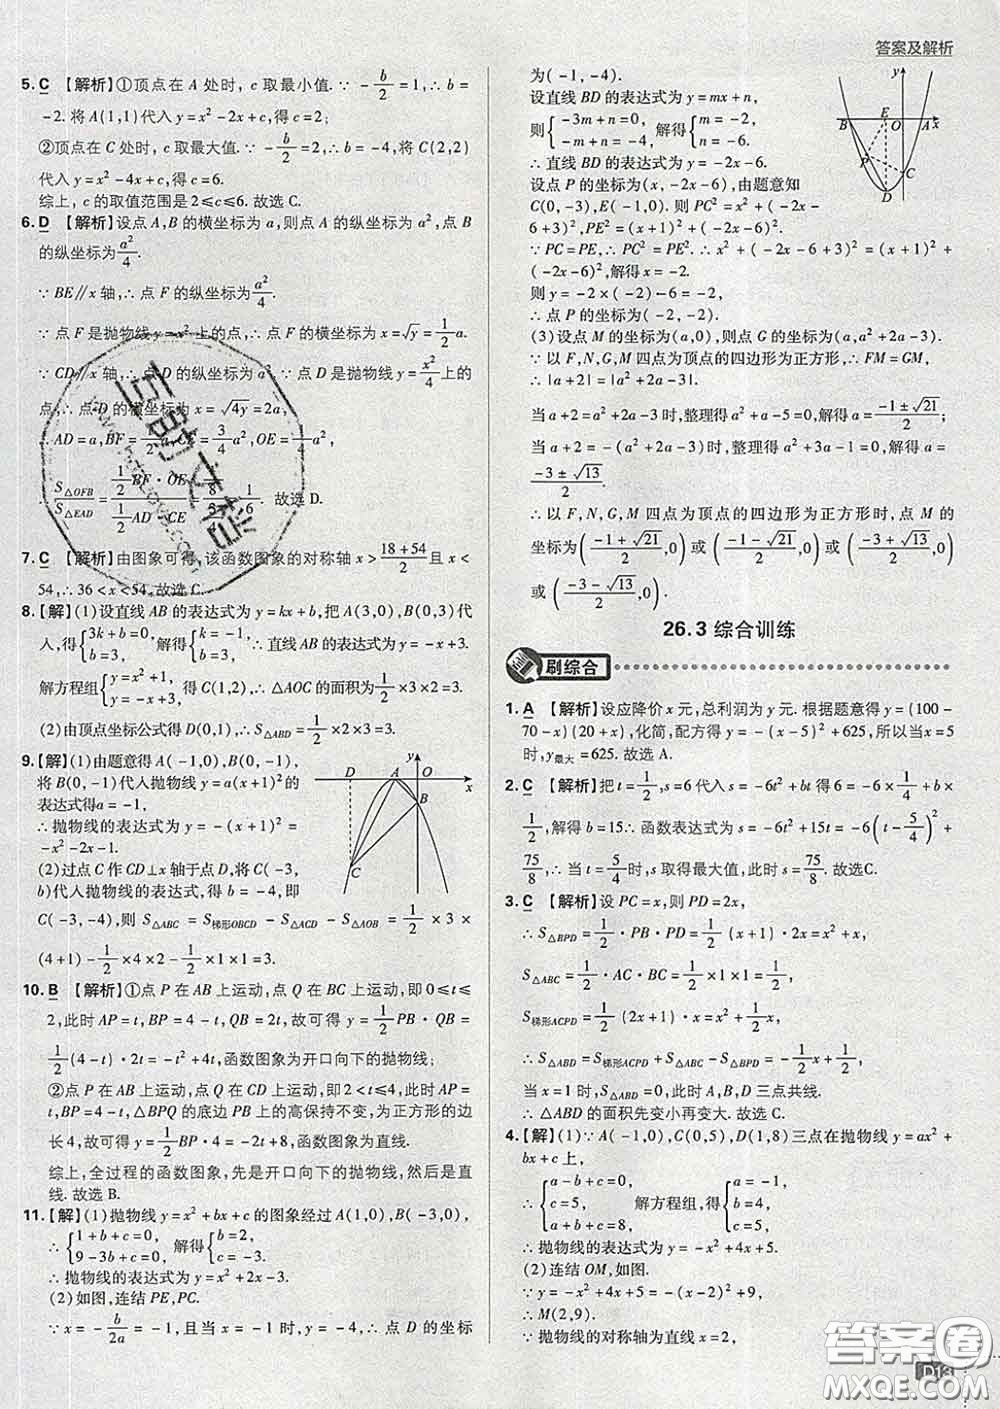 答案及解析
5. C 【解析】①顶点在 A 处时, c 取最小值. ∵ -b/2 = 1, ∴ b =
-2. 将 A(1,1)代入 y = x² - 2x + c, 得 c = 2;
②顶点在 C 处时, c 取最大值. ∵ -b/2 = 2, ∴ b = -4. 将 C(2,2)
代入 y = x² - 4x + c, 得 c = 6.
综上, c 的取值范围是 2≤c≤6. 故选 C.
6. D 【解析】设点 A,B 的横坐标为 a, 则点 A 的纵坐标为 a², 点 B
的纵坐标为 a²/4.
∵ BE∥x 轴, ∴ 点 F 的纵坐标为 a²/4.
∵ 点 F 是抛物线 y = x² 上的点, ∴ 点 F 的横坐标为 x = √y = 1/2 a.
∵ CD∥x 轴, ∴ 点 D 的纵坐标为 a². ∵ 点 D 是抛物线 y = x²/4 上的
点, ∴ 点 D 的横坐标为 x = √4y = 2a,
∴ AD = a, BF = 1/2 a, CE = 3/4 a², OE = 1/4 a²,
∴ S△OFB/S△EAD = (1/2 BF · OE)/(1/2 AD · CE) = 1/6. 故选 D.
7. C 【解析】由图象可得, 该函数图象的对称轴 x > (18 + 54)/2 且 x <
54, ∴ 36 < x < 54. 故选 C.
8. 【解】(1)设直线 AB 的表达式为 y = kx + b, 把 A(3,0), B(0,3)代
人, 得 {3k + b = 0, b = 3, 解得 {k = -1, b = 3, ∴ 直线 AB 的表达式为 y = -x + 3.
解方程组 {y = x² + 1, y = -x + 3, 得 C(1,2), ∴ △AOC 的面积为 1/2 × 3 × 2 = 3.
(2)由顶点坐标公式得 D(0,1), ∴ S△ABD = 1/2 × 2 × 3 = 3.
9. 【解】(1)由题意得 A(-1,0), B(0,-1),
将 B(0,-1)代入抛物线 y = a(x + 1)² 的
表达式得 a = -1,
∴ 抛物线的表达式为 y = -(x + 1)² =
-x² - 2x - 1.
(2)过点 C 作 CD⊥x 轴于点 D, 将 C(-3,
b)代入抛物线的表达式, 得 b = -4, 即
C(-3,-4), 则 S△ABC = S梯形OBCD - S△ACD - S△AOB = 1/2 × 3 ×
(4 + 1) - 1/2 × 4 × 2 - 1/2 × 1 × 1 = 3.
D A O x y B C
10. B 【解析】①点 P 在 AB 上运动, 点 Q 在 BC 上运动, 即 0≤t≤
2, 此时 AP = t, BP = 4 - t, QB = 2t, 故可得 y = 1/2 PB · QB =
1/2 (4 - t) · 2t = -t² + 4t, 函数图象为开口向下的抛物线;
②点 P 在 AB 上运动, 点 Q 在 CD 上运动, 即 2 < t≤4, 此时 AP =
t, BP = 4 - t, △BPQ 的底边 PB 上的高保持不变, 为正方形的边
长 4, 故可得 y = 1/2 BP · 4 = -2t + 8, 函数图象为直线.
综上, 全过程的函数图象, 先是开口向下的抛物线, 然后是直
线. 故选 B.
11. 【解】(1)抛物线 y = x² + bx + c 的图象经过 A(1,0), B(-3,0),
∴ {1 + b + c = 0, 9 - 3b + c = 0, 解得 {b = 2, c = -3,
∴ 抛物线的表达式为 y = x² + 2x - 3.
(2)如图, 连结 PE, PC.
∵ x = -b/2a = -1, ∴ 当 x = -1 时, y = -4, ∴ 点 D 的坐标
为(-1,-4).
设直线 BD 的表达式为 y = mx + n,
则 {-3m + n = 0, -m + n = -4, 解得 {m = -2, n = -6,
∴ 直线 BD 的表达式为 y = -2x - 6.
设点 P 的坐标为(x, -2x - 6), 由题意知
C(0,-3), E(-1,0). 则 PC² = x² + (-2x -
6 + 3)², PE² = (x + 1)² + (-2x - 6)².
∵ PC = PE, ∴ PC² = PE². ∴ x² + (-2x - 6 + 3)² = (x + 1)² +
(-2x - 6)², 解得 x = -2.
则 y = -2 × (-2) - 6 = -2,
∴ 点 P 的坐标为(-2,-2).
y B E O A x P C D
(3)设点 M 的坐标为(a,0), 则点 G 的坐标为(a, a² + 2a - 3).
∵ 以 F, N, G, M 四点为顶点的四边形为正方形, ∴ FM = GM,
∴ |a + 2| = |a² + 2a - 3|,
当 a + 2 = a² + 2a - 3时, 整理得 a² + a - 5 = 0, 解得 a = (-1 ± √21)/2;
当 a + 2 = -(a² + 2a - 3)时, 整理得 a² + 3a - 1 = 0, 解得 a =
(-3 ± √13)/2.
∴ 以 F, N, G, M 四点为顶点的四边形为正方形时, 点 M 的
坐标为 ((-1 + √21)/2, 0) 或 ((-1 - √21)/2, 0) 或 ((-3 + √13)/2, 0)
或 ((-3 - √13)/2, 0).
26.3 综合训练
刷综合
1. A 【解析】设应降价 x 元, 总利润为 y 元. 根据题意得 y = (100 -
70 - x)(20 + x), 化简, 配方得 y = -(x - 5)² + 625, 所以当 x = 5
时, y最大 = 625. 故选 A.
2. C 【解析】把 t = 1/2, s = 6 代入 s = -6t² + bt 得 6 = -6 × 1/4 + b ×
1/2, 解得 b = 15 ∴ 函数表达式为 s = -6t² + 15t = -6(t - 5/4)² +
75/8, ∴ 当 t = 5/4 时, s 取得最大值, 此时 s = 75/8. 故选C.
3. C 【解析】设 PC = x, 则 PD = 2x,
∴ S△BPD = 1/2 · PB · PD = 1/2 (x + 1) · 2x = x² + x,
S△ABC = 1/2 · AC · BC = 1/2 × 1 × 1 = 1/2,
S梯形ACPD = 1/2 (2x + 1) · x = x² + 1/2 x,
∴ S△ABD = S梯形ACPD + S△ABC - S△BPD = 1/2 - 1/2 x,
当 x = 1 时, S△ABD = 0, 此时 A, B, D 三点共线.
∴ △ABD 的面积先变小再变大. 故选 C.
4. 【解】(1) ∵ A(-1,0), C(0,5), D(1,8)三点在抛物线 y = ax² +
bx + c 上,
∴ {a - b + c = 0, c = 5, a + b + c = 8, 解方程组, 得 {a = -1, b = 4, c = 5,
∴ 抛物线的表达式为 y = -x² + 4x + 5.
(2)连结 OM, 如图.
∵ y = -x² + 4x + 5 = -(x - 2)² + 9,
∴ M(2,9).
∵ 抛物线的对称轴为直线 x = 2,
D13
答案圈
MXQE.COM